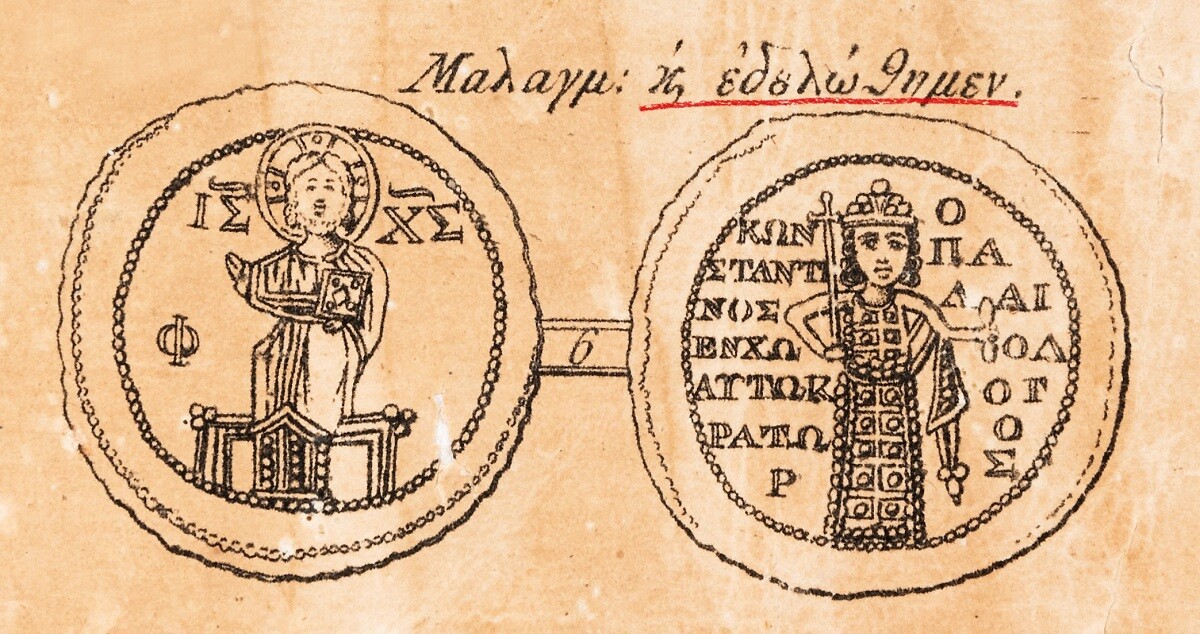 Μαλαγμ: ϗ ἐδȣλώθημεν.
ΙΣ ΧΣ
Φ
6
ΚΩΝ
ΣΤΑΝΤΙ
ΝΟΣ
ΕΝΧΩ
ΑΥΤΩΚ
ΡΑΤΩ
Ρ
Ο
ΠΑ
ΛΑΙ
ΟΛ
ΟΓ
Ο
Σ